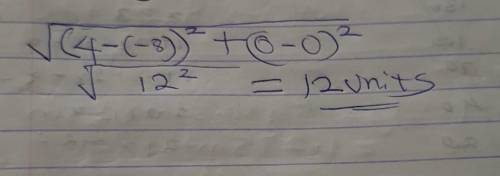 √(4-(-8))² + (0-0)²
√12² = 12 units